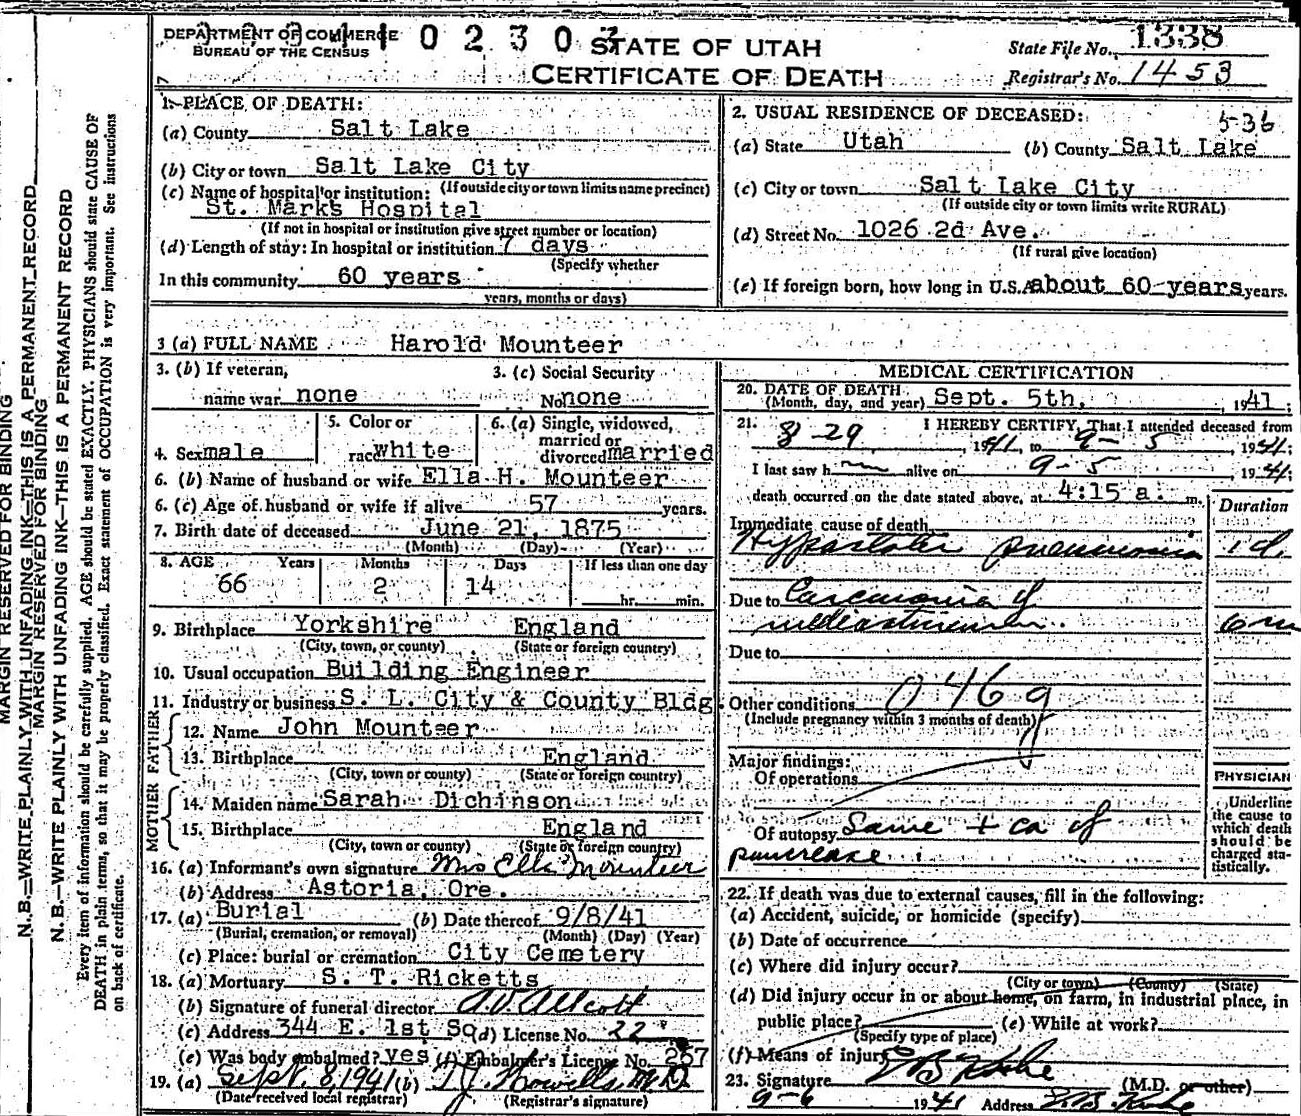 DEPARTMENT OF COMMERCE
BUREAU OF THE CENSUS
10230
STATE OF UTAH
CERTIFICATE OF DEATH
State File No. 1338
Registrar's No. 1453
1. PLACE OF DEATH:
(a) County Salt Lake
(b) City or town Salt Lake City
(If outside city or town limits name precinct)
(c) Name of hospital or institution:
St. Marks Hospital
(If not in hospital or institution give street number or location)
(d) Length of stay: In hospital or institution 7 days
(Specify whether
In this community 60 years
years, months or days)
2. USUAL RESIDENCE OF DECEASED: 5-36
(a) State Utah (b) County Salt Lake
(c) City or town Salt Lake City
(If outside city or town limits write RURAL)
(d) Street No. 1026 2d Ave.
(If rural give location)
(e) If foreign born, how long in U.S.A. about 60 years years.
3 (a) FULL NAME Harold Mounteer
3. (b) If veteran,
name war none
3. (c) Social Security
No none
4. Sex male
5. Color or
race white
6. (a) Single, widowed,
married or
divorced married
6. (b) Name of husband or wife Ella H. Mounteer
6. (c) Age of husband or wife if alive 57 years.
7. Birth date of deceased June 21, 1875
(Month) (Day) (Year)
8. AGE Years Months Days If less than one day
66 2 14 hr. min.
9. Birthplace Yorkshire England
(City, town, or county) (State or foreign country)
10. Usual occupation Building Engineer
11. Industry or business S. L. City & County Bldg.
FATHER
12. Name John Mounteer
13. Birthplace England
(City, town or county) (State or foreign country)
MOTHER
14. Maiden name Sarah Dichinson
15. Birthplace England
(City, town or county) (State or foreign country)
16. (a) Informant's own signature Mrs Ella Mounteer
(b) Address Astoria, Ore.
17. (a) Burial (b) Date thereof 9/8/41
(Burial, cremation, or removal) (Month) (Day) (Year)
(c) Place: burial or cremation City Cemetery
18. (a) Mortuary S. T. Ricketts
(b) Signature of funeral director
(c) Address 344 E. 1st So (d) License No. 22
(e) Was body embalmed? yes (f) Embalmer's License No. 267
19. (a) Sept. 8, 1941 (b) T. J. Howells M.D.
(Date received local registrar) (Registrar's signature)
MEDICAL CERTIFICATION
20. DATE OF DEATH
(Month, day, and year) Sept. 5th, 1941
21. I HEREBY CERTIFY, That I attended deceased from
8-29, 1941, to 9-5, 1941;
I last saw h alive on 9-5 1941;
death occurred on the date stated above, at 4:15 a. m.
Duration
Immediate cause of death
Hypostatic pneumonia 1 d.
Due to Carcinoma of
mediastinum 6 m
Due to
Other conditions 046g
(Include pregnancy within 3 months of death)
Major findings:
Of operations
Of autopsy Same + ca of
pancreas
PHYSICIAN
Underline
the cause to
which death
should be
charged sta-
tistically.
22. If death was due to external causes, fill in the following:
(a) Accident, suicide, or homicide (specify)
(b) Date of occurrence
(c) Where did injury occur?
(City or town) (County) (State)
(d) Did injury occur in or about home, on farm, in industrial place, in
public place? (e) While at work?
(Specify type of place)
(f) Means of injury
23. Signature (M.D. or other)
9-6 1941 Address
MARGIN RESERVED FOR BINDING
N. B.—WRITE PLAINLY WITH UNFADING INK—THIS IS A PERMANENT RECORD
MARGIN RESERVED FOR BINDING
N. B.—WRITE PLAINLY WITH UNFADING INK—THIS IS A PERMANENT RECORD
Every item of information should be carefully supplied. AGE should be stated EXACTLY. PHYSICIANS should state CAUSE OF
DEATH in plain terms, so that it may be properly classified. Exact statement of OCCUPATION is very important. See instructions
on back of certificate.